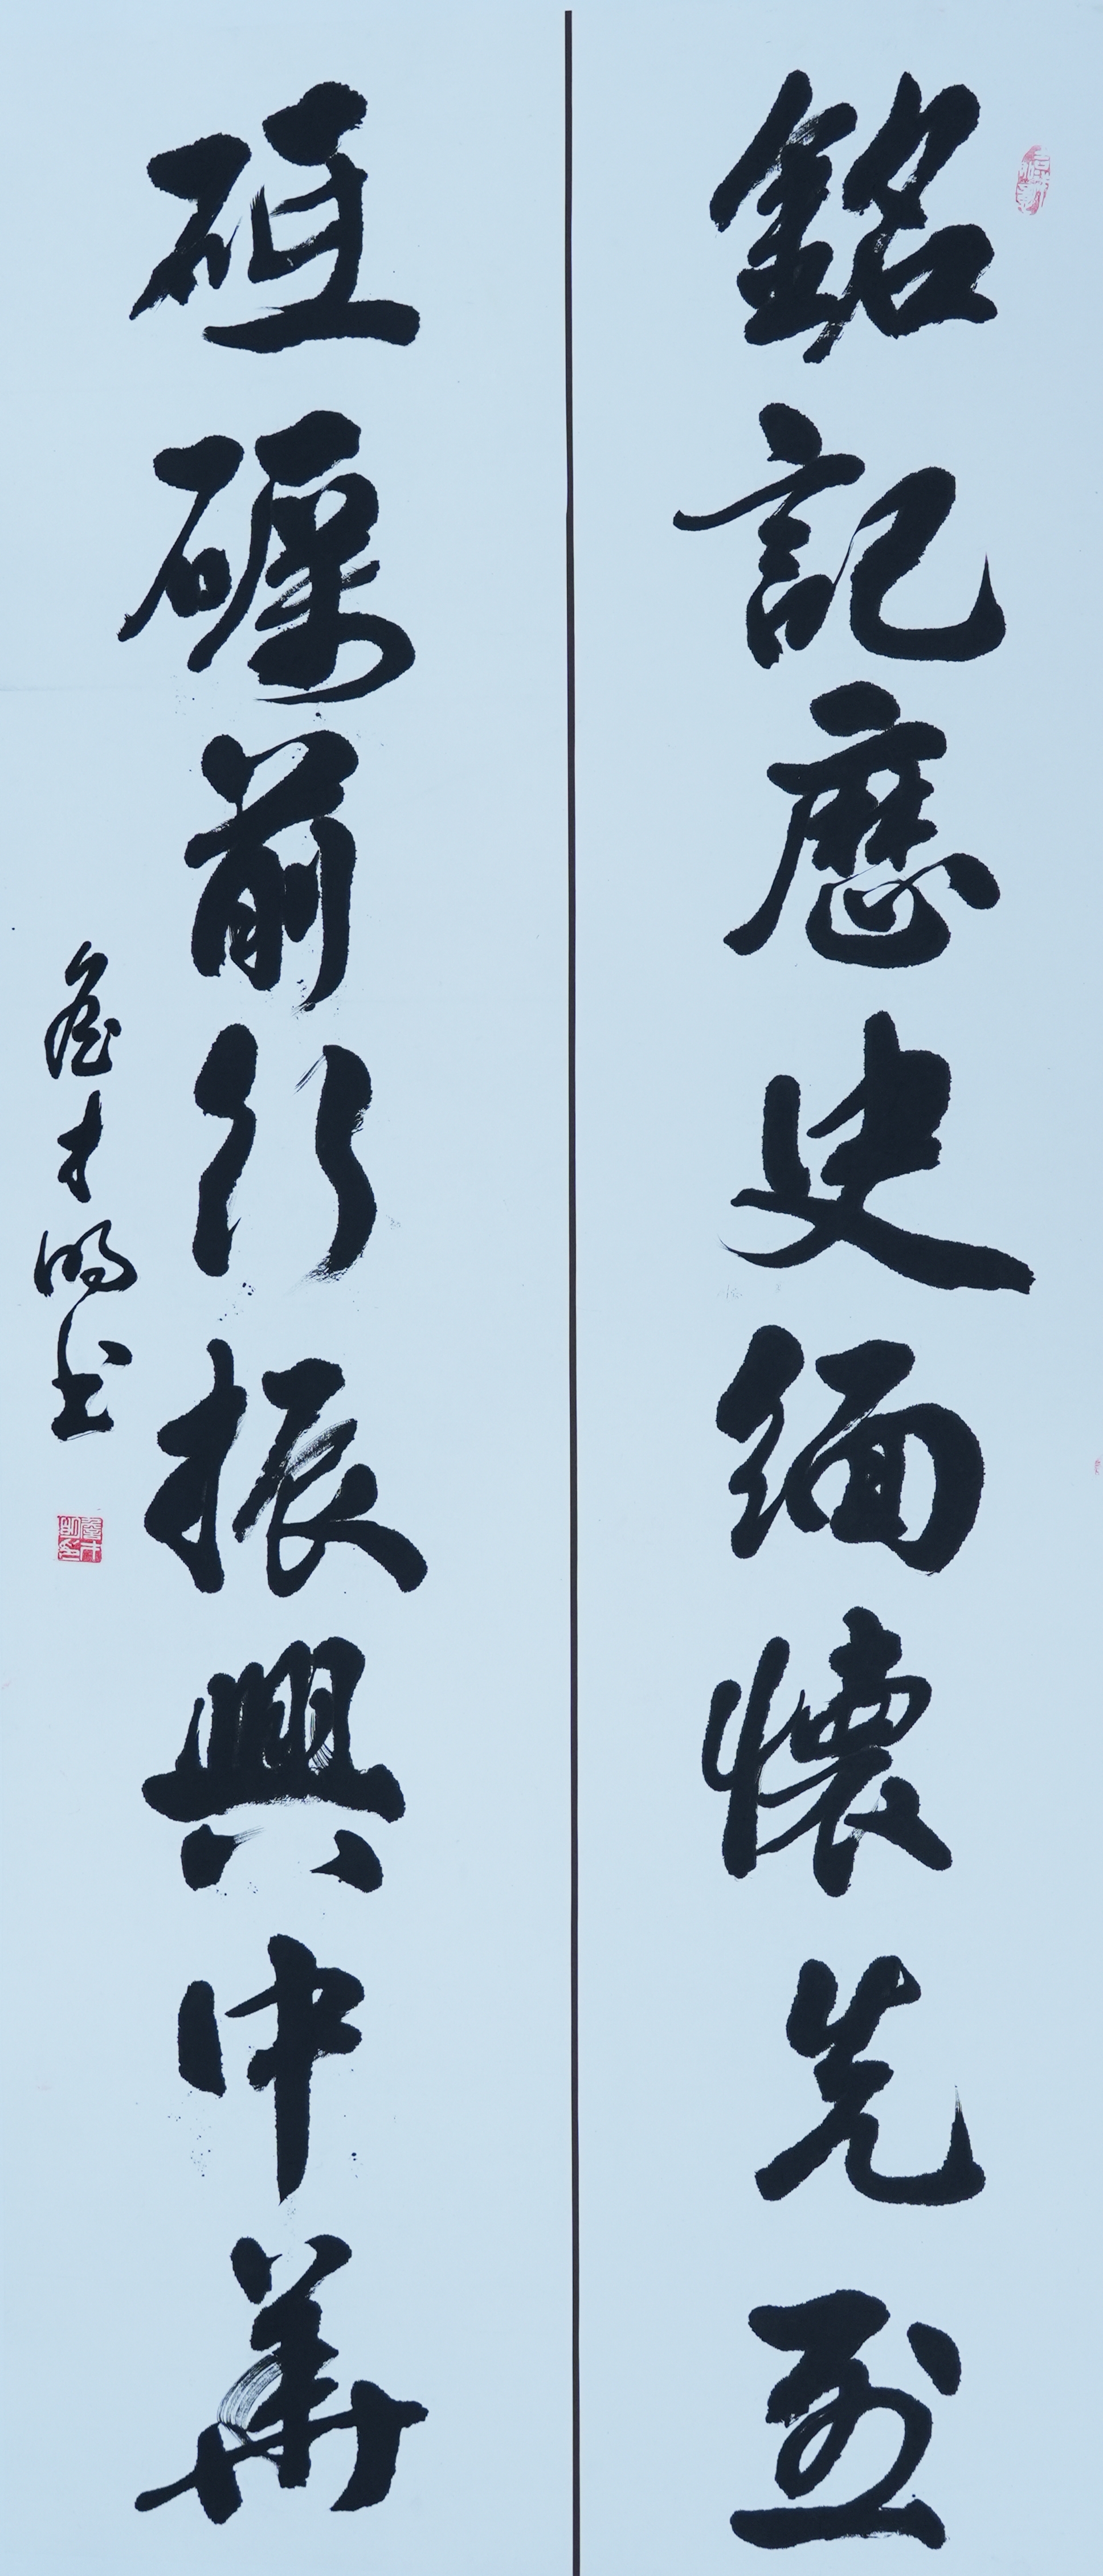 銘記歷史緬懷先烈
砥礪前行振興中華
詹才明书